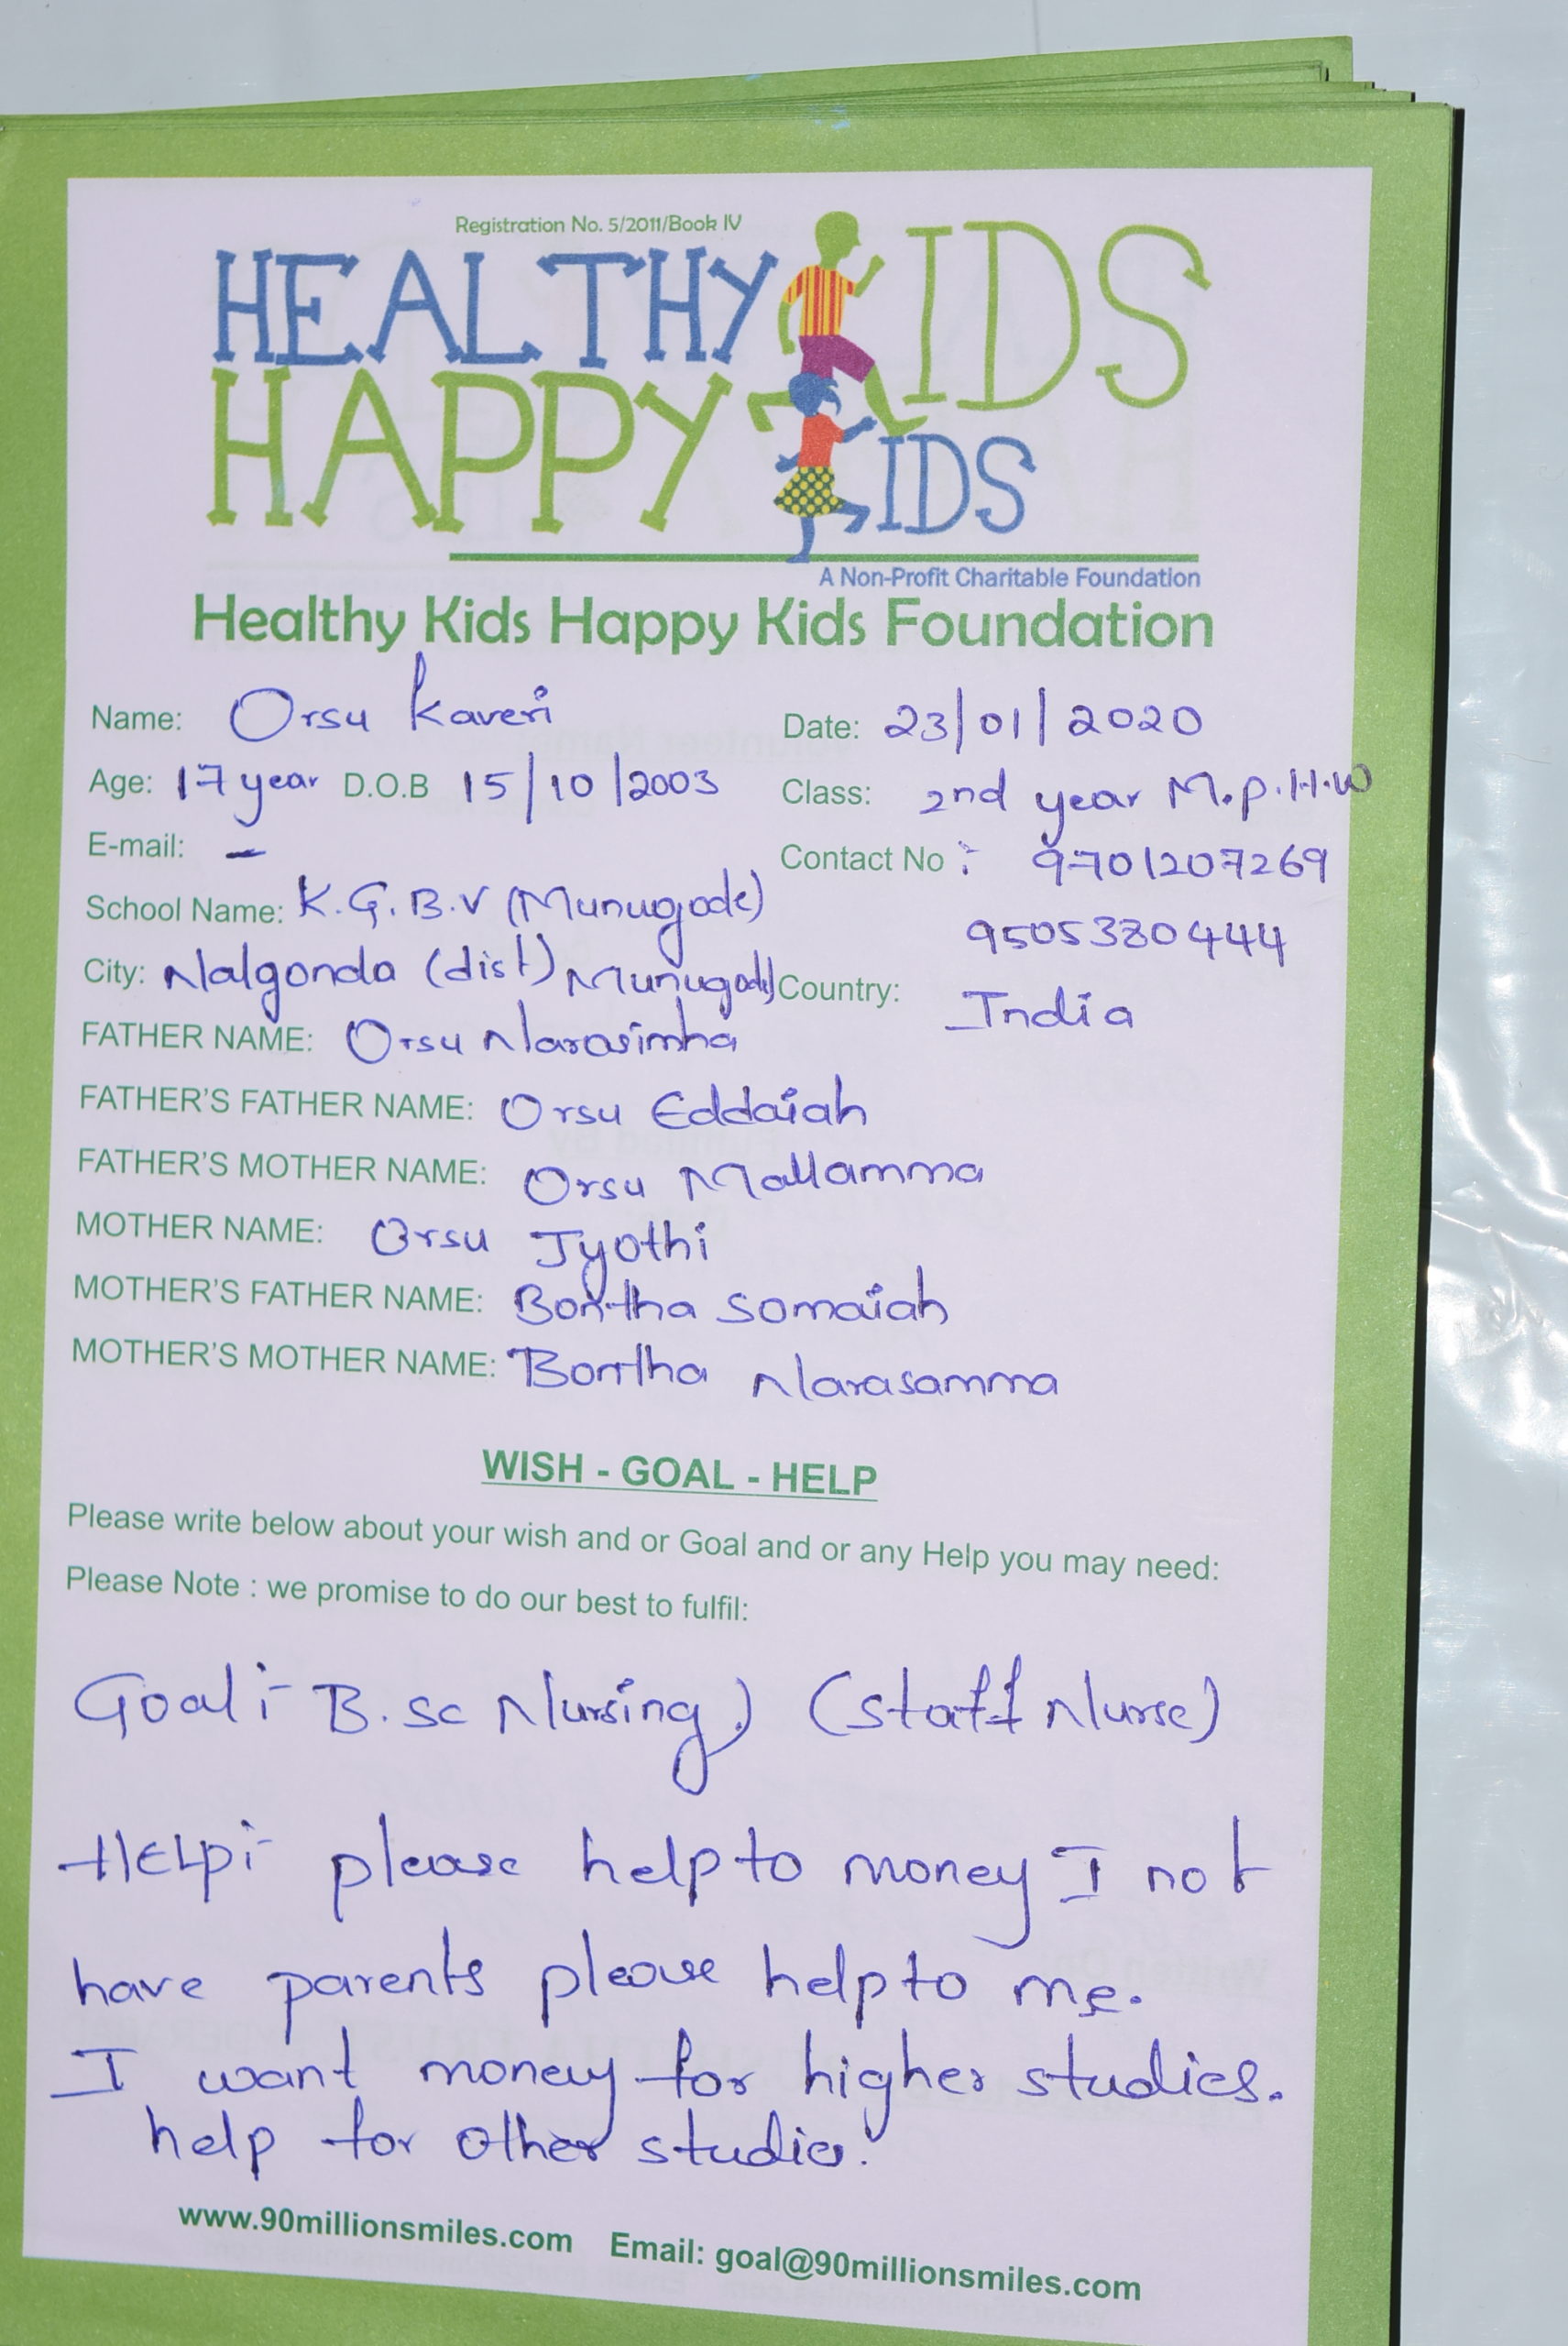 Registration No. 5/2011/Book IV
HEALTHY KIDS
HAPPY KIDS
A Non-Profit Charitable Foundation
Healthy Kids Happy Kids Foundation
Name: Orsu Kaveri Date: 23/01/2020
Age: 17 year D.O.B 15/10/2003 Class: 2nd year M.p.H.W
E-mail: - Contact No :- 9701207269
School Name: K.G.B.V (Munugode) 9505380444
City: Nalgonda (dist) Munugode) Country: India
FATHER NAME: Orsu Narasimha
FATHER'S FATHER NAME: Orsu Eddaiah
FATHER'S MOTHER NAME: Orsu Mallamma
MOTHER NAME: Orsu Jyothi
MOTHER'S FATHER NAME: Bontha Somaiah
MOTHER'S MOTHER NAME: Bontha Narasamma
WISH - GOAL - HELP
Please write below about your wish and or Goal and or any Help you may need:
Please Note : we promise to do our best to fulfil:
Goal :- B.sc Nursing) (staff Nurse)
HELP :- please help to money I not
have parents please help to me.
I want money for higher studies.
help for other studies.
www.90millionsmiles.com Email: goal@90millionsmiles.com